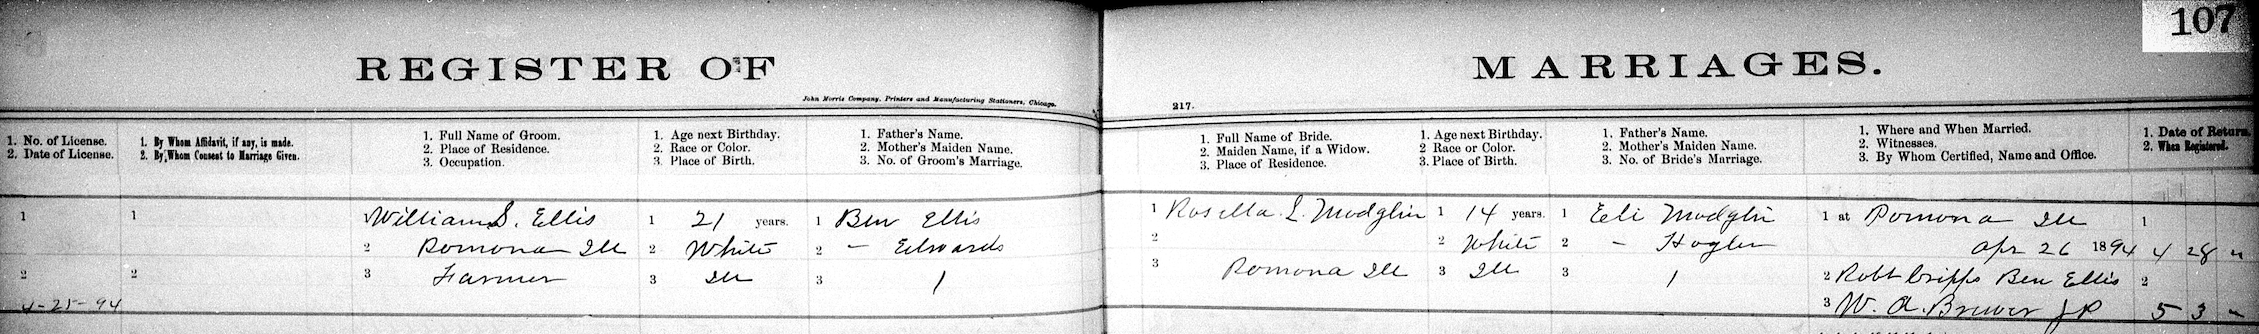 107
REGISTER OF MARRIAGES.
John Morris Company, Printers and Manufacturing Stationers, Chicago.
217.
1. No. of License.
2. Date of License.
1. By Whom Affidavit, if any, is made.
2. By Whom Consent to Marriage Given.
1. Full Name of Groom.
2. Place of Residence.
3. Occupation.
1. Age next Birthday.
2. Race or Color.
3. Place of Birth.
1. Father's Name.
2. Mother's Maiden Name.
3. No. of Groom's Marriage.
1. Full Name of Bride.
2. Maiden Name, if a Widow.
3. Place of Residence.
1. Age next Birthday.
2 Race or Color.
3. Place of Birth.
1. Father's Name.
2. Mother's Maiden Name.
3. No. of Bride's Marriage.
1. Where and When Married.
2. Witnesses.
3. By Whom Certified, Name and Office.
1. Date of Return.
2. When Registered.
1
2
4-25-94
1
2
William S. Ellis
2 Pomona Ill
3 Farmer
1 21 years.
2 White
3 Ill
1 Ben Ellis
2 – Edwards
3 1
1 Rosella L. Modglin
2
3 Pomona Ill
1 14 years.
2 White
3 Ill
1 Eli Modglin
2 – Hogler
3 1
1 at Pomona Ill
Apr 26 1894
2 Robt Cripps Ben Ellis
3 W. A. Brewer J P
1
4 28 "
2
5 3 "